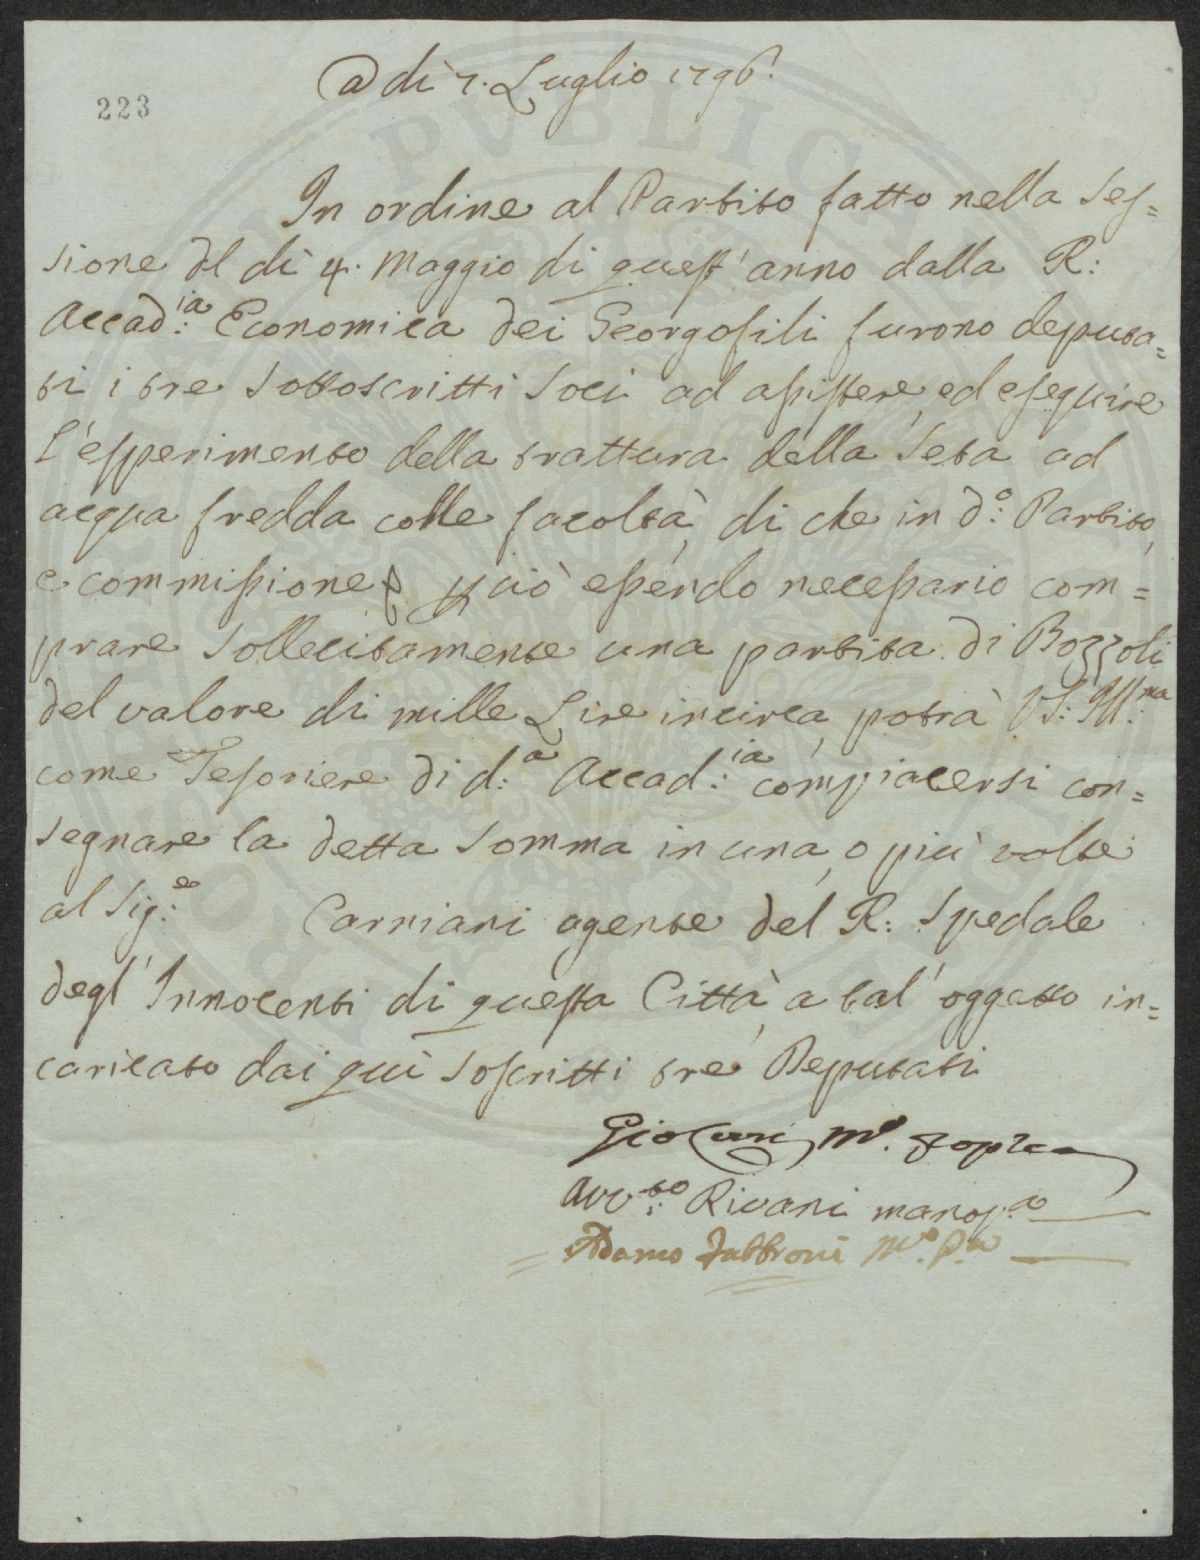 223
A dì 7. Luglio 1796.
In ordine al Partito fatto nella Ses=
sione del dì 4. Maggio di quest' anno dalla R:
Accad:ia Economica dei Georgofili furono deputa=
ti i tre sottoscritti Soci ad assistere, ed eseguire
L'esperimento della trattura della Seta ad
acqua fredda colle facoltà, di che in d:o Partito,
e commissione, e per ciò essendo necessario com=
prare sollecitamente una partita di Bozzoli
del valore di mille Lire incirca, potrà VS: Ill:ma
come Tesoriere di d:a Accad:ia compiacersi con=
segnare la detta Somma in una, o più volte
al Sig:re Carniani agente del R: Spedale
degl' Innocenti di questa Città, a tal' oggetto in=
caricato dai quì soscritti trè Deputati
Avv:to Rivani mano p:a
Adamo Fabbroni M:o P:a